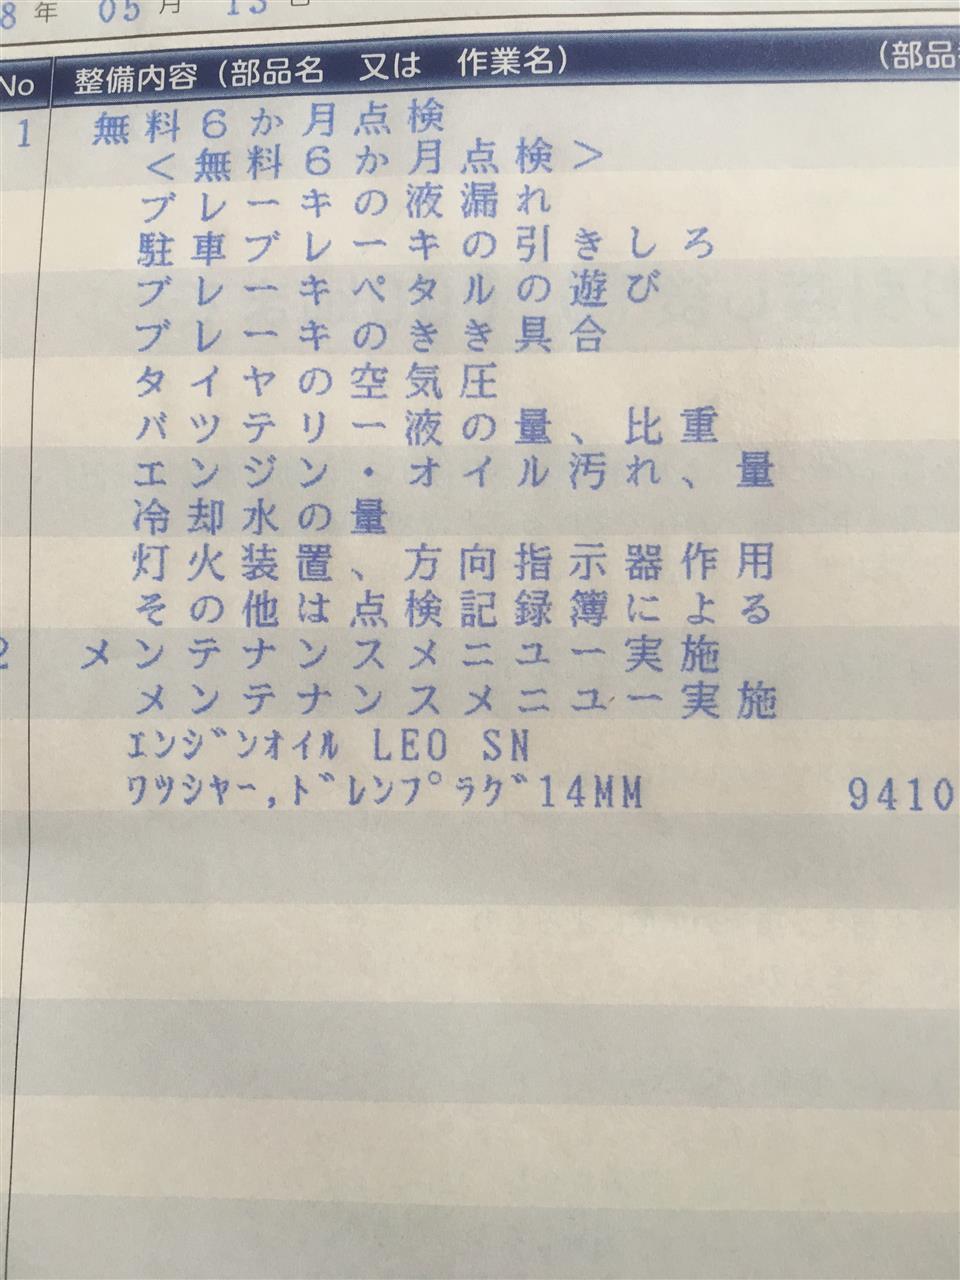 8年 05月 13日
No 整備内容（部品名 又は 作業名） （部品
1 無料６か月点検
＜無料６か月点検＞
ブレーキの液漏れ
駐車ブレーキの引きしろ
ブレーキペダルの遊び
ブレーキのきき具合
タイヤの空気圧
バツテリー液の量、比重
エンジン・オイル汚れ、量
冷却水の量
灯火装置、方向指示器作用
その他は点検記録簿による
2 メンテナンスメニュー実施
メンテナンスメニュー実施
ｴﾝｼﾞﾝｵｲﾙ LEO SN
ﾜﾂｼﾔｰ,ﾄﾞﾚﾝﾌﾟﾗｸﾞ14MM 9410